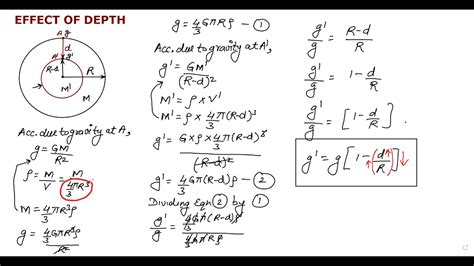 EFFECT OF DEPTH
A g
d
A' g'
R-d
R
M'
M
Acc. due to gravity at A,
g = GM/R²
ρ = M/V = M/(4/3 πR³)
M = 4/3 πR³ρ
g = 4/3 GπR³ρ/R²
g = 4/3 GπRρ — ①
Acc. due to gravity at A',
g' = GM'/(R-d)²
M' = ρ × V'
M' = ρ × 4/3 π(R-d)³
g' = G×ρ×4/3 π(R-d)³/(R-d)²
g' = 4/3 Gπ(R-d)ρ — ②
Dividing Eqn ② by ①
g'/g = 4/3 Gπ(R-d)ρ / 4/3 GπRρ
g'/g = R-d/R
g'/g = 1-d/R
g'/g = [1-d/R]
g' = g[1-(d↑/R)]↓